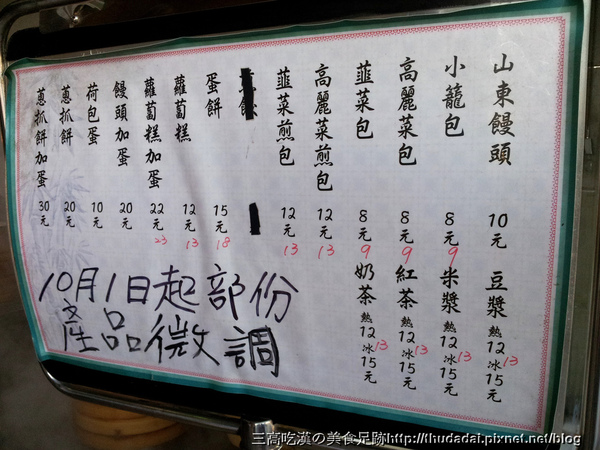 山東饅頭 10元
小籠包 8元 9
高麗菜包 8元 9
韮菜包 8元 9
高麗菜煎包 12元 13
韮菜煎包 12元 13
蛋餅 15元 18
蘿蔔糕 12元 13
蘿蔔糕加蛋 22元 23
饅頭加蛋 20元
荷包蛋 10元
蔥抓餅 20元
蔥抓餅加蛋 30元
豆漿 熱12 13 冰15元
米漿 熱12 13 冰15元
紅茶 熱12 13 冰15元
奶茶 熱12 13 冰15元
10月1日起部份
產品微調
三高吃漢の美食足跡http://thudadai.pixnet.net/blog